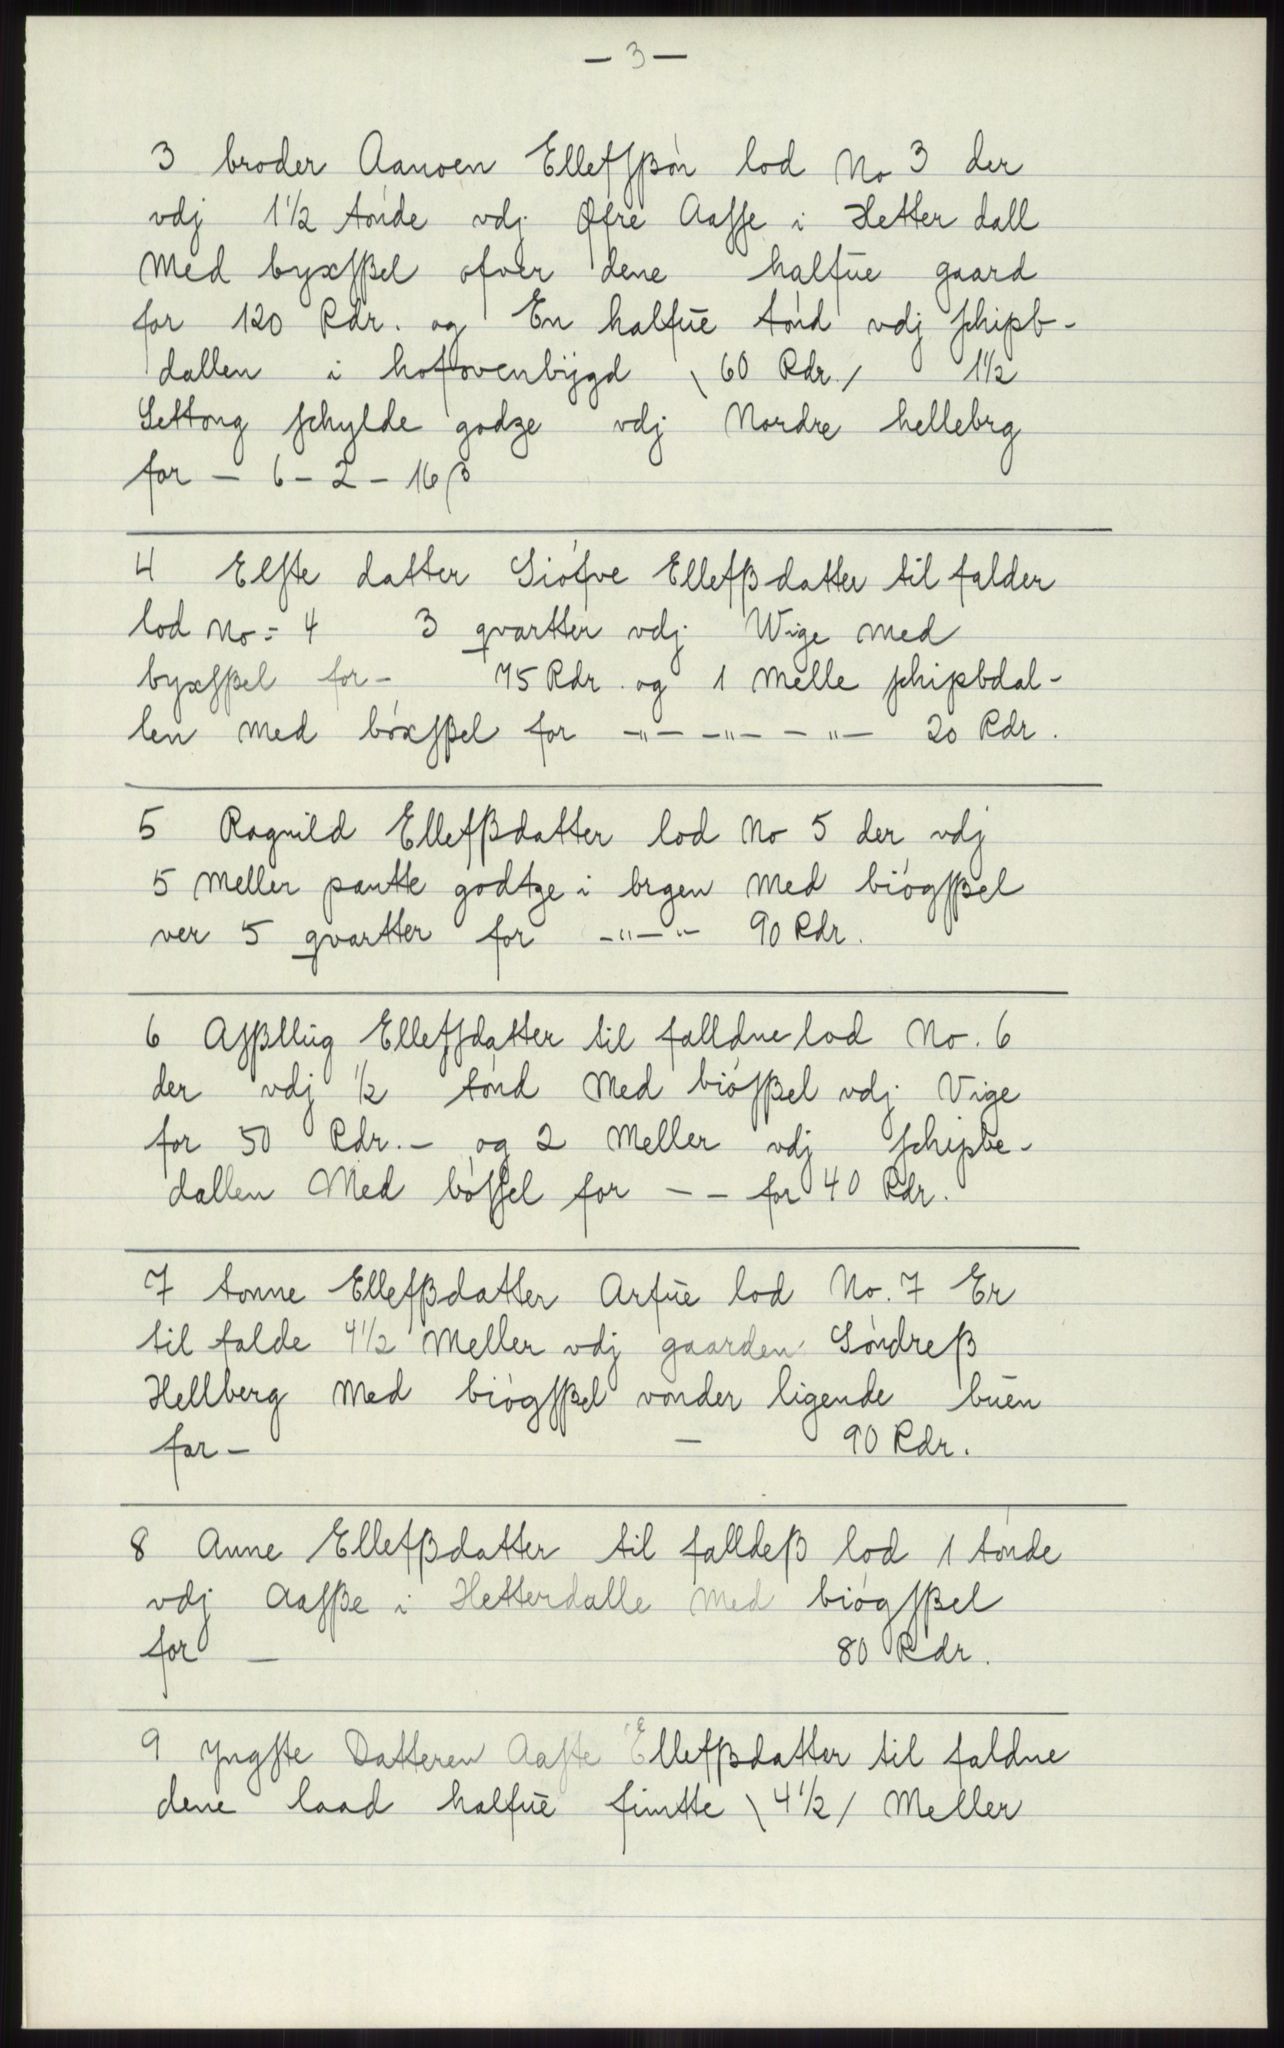 — 3 —
3 broder Aanoen Ellefsßón lod No 3 der
vdj 1½ tónde vdj Øfre Aasse i Hetter dall
Med byxsßel ofver dene halfue gaard
for 120 Rdr. og En halfue tónd vdj schipb-
dallen i hofovenbÿgd \ 60 Rdr / 1½
Settong schylde godze vdj Nordre hellebrg
for — 6 — 2 — 16 β
4 Elste datter Siófve Ellefßdatter til falder
lod No = 4 3 qvartter vdj Wige med
byxsßel for — 75 Rdr. og 1 Melle schipbdal-
len med bóxsßel for —"— —"— —"— 20 Rdr.
5 Ragnild Ellefßdatter lod No 5 der vdj
5 Meller pantte godtze i brgen Med biógsßel
ver 5 qvartter for —"—"— 90 Rdr.
6 Assßllug Ellefsdatter til falldne lod No. 6
der vdj ½ tónd Med biósßel vdj Vige
for 50 Rdr. — og 2 Meller vdj schipbe-
dallen Med bóssel for — — for 40 Rdr.
7 tonne Ellefßdatter Arfue lod No. 7 Er
til falde 4½ Meller vdj gaarden Sóndreß
Hellberg Med biógsßel vonder ligende buen
for — — 90 Rdr.
8 Anne Ellefßdatter til falldeß lod 1 tónde
vdj Aasße i Hetterdalle med biógsßel
for — 80 Rdr.
9 yngste Datteren Aaste Ellefßdatter til faldne
dene laad halfue fimtte \ 4½ / Meller